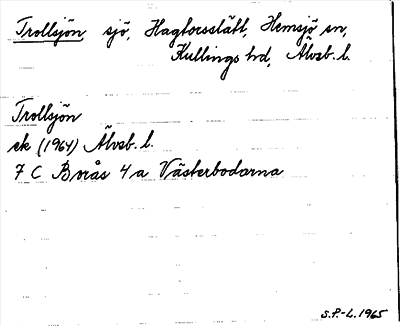 Trollsjön sjö, Hagforsslätt, Hemsjö sn,
Kullings hd, Älvsb. l.
Trollsjön
ek (1964) Älvsb. l.
7 C Borås 4 a Västerbodarna
S.P.-L. 1965